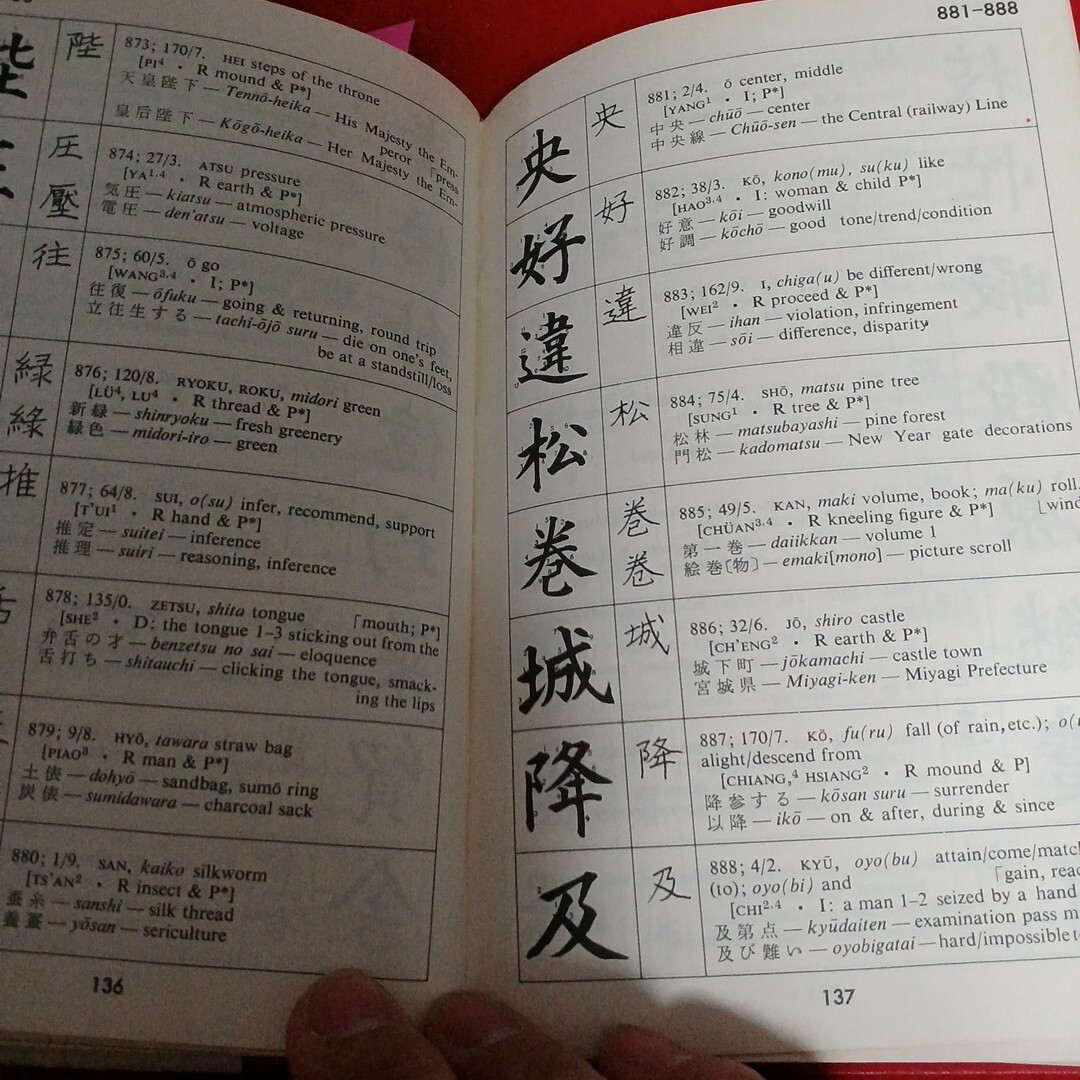 陛
873; 170/7. HEI steps of the throne
[PI⁴ · R mound & P*]
天皇陛下 — Tennō-heika — His Majesty the Em-
peror
皇后陛下 — Kōgō-heika — Her Majesty the Em-
「press
圧
壓
874; 27/3. ATSU pressure
[YA¹·⁴ · R earth & P*]
気圧 — kiatsu — atmospheric pressure
電圧 — den'atsu — voltage
往
875; 60/5. Ō go
[WANG³·⁴ · I; P*]
往復 — ōfuku — going & returning, round trip
立往生する — tachi-ōjō suru — die on one's feet,
be at a standstill/loss
緑
綠
876; 120/8. RYOKU, ROKU, midori green
[LÜ⁴, LU⁴ · R thread & P*]
新緑 — shinryoku — fresh greenery
緑色 — midori-iro — green
推
877; 64/8. SUI, o(su) infer, recommend, support
[T'UI¹ · R hand & P*]
推定 — suitei — inference
推理 — suiri — reasoning, inference
舌
878; 135/0. ZETSU, shita tongue 「mouth; P*]
[SHE² · D: the tongue 1-3 sticking out from the
弁舌の才 — benzetsu no sai — eloquence
舌打ち — shitauchi — clicking the tongue, smack-
ing the lips
879; 9/8. HYŌ, tawara straw bag
[PIAO³ · R man & P*]
土俵 — dohyō — sandbag, sumō ring
炭俵 — sumidawara — charcoal sack
880; 1/9. SAN, kaiko silkworm
[TS'AN² · R insect & P*]
蚕糸 — sanshi — silk thread
養蚕 — yōsan — sericulture
136
881-888
央
央
881; 2/4. Ō center, middle
[YANG¹ · I; P*]
中央 — chūō — center
中央線 — Chūō-sen — the Central (railway) Line
好
好
882; 38/3. KŌ, kono(mu), su(ku) like
[HAO³·⁴ · I: woman & child P*]
好意 — kōi — goodwill
好調 — kōchō — good tone/trend/condition
違
違
883; 162/9. I, chiga(u) be different/wrong
[WEI² · R proceed & P*]
違反 — ihan — violation, infringement
相違 — sōi — difference, disparity
松
松
884; 75/4. SHŌ, matsu pine tree
[SUNG¹ · R tree & P*]
松林 — matsubayashi — pine forest
門松 — kadomatsu — New Year gate decorations
巻
巻
卷
885; 49/5. KAN, maki volume, book; ma(ku) roll,
[CHÜAN³·⁴ · R kneeling figure & P*] ⌊wind
第一巻 — daiikkan — volume 1
絵巻〔物〕 — emaki[mono] — picture scroll
城
城
886; 32/6. JŌ, shiro castle
[CH'ENG² · R earth & P*]
城下町 — jōkamachi — castle town
宮城県 — Miyagi-ken — Miyagi Prefecture
降
降
887; 170/7. KŌ, fu(ru) fall (of rain, etc.);
alight/descend from
[CHIANG,⁴ HSIANG² · R mound & P]
降参する — kōsan suru — surrender
以降 — ikō — on & after, during & since
及
及
888; 4/2. KYŪ, oyo(bu) attain/come/match
(to); oyo(bi) and 「gain,
[CHI²·⁴ · I: a man 1-2 seized by a hand
及第点 — kyūdaiten — examination pass
及び難い — oyobigatai — hard/impossible
137